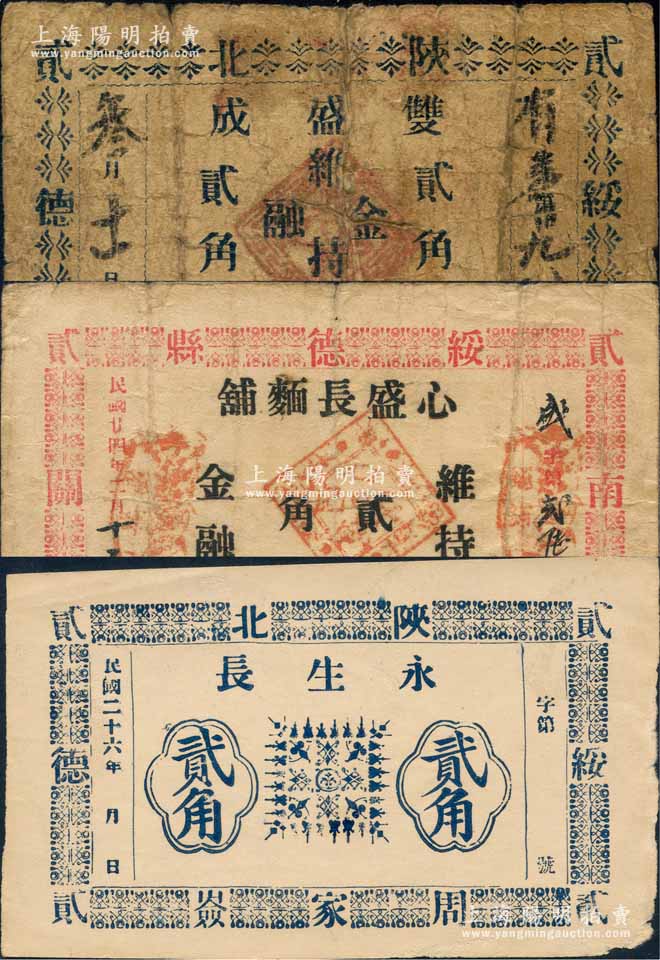 上海陽明拍賣
www.yangmingauction.com
貳 陝北 貳
綏德
雙盛成
貳角 貳角
維持
金融
月
日
上海陽明拍賣
www.yangmingauction.com
貳 綏德縣 貳
南關
心盛長麵舖
維持
貳角
金融
民國廿四年
貳 陝北 貳
綏德
永生長
字第 號
貳角 貳角
民國二十六年 月 日
貳 周家 貳
上海陽明拍賣
www.yangmingauction.com